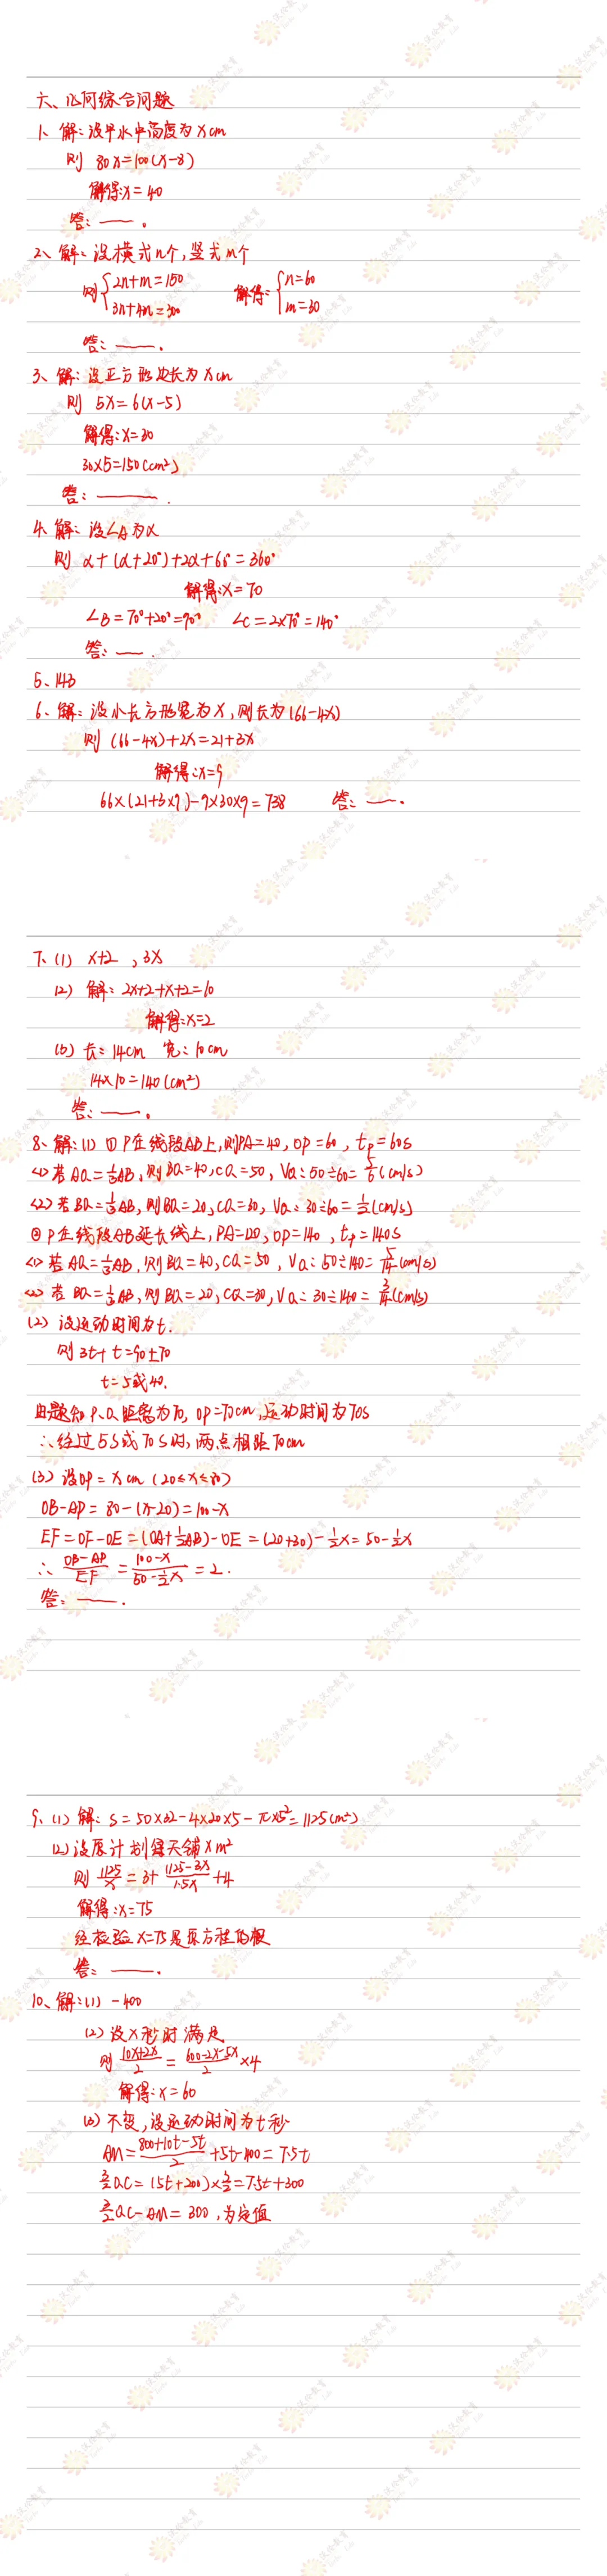 六、几何综合问题
1、解：设甲水中高度为xcm
则 80x=100(x-8)
解得:x=40
答：——。
2、解：设横式n个,竖式m个
则{2n+m=150 3n+4m=300 解得:{n=60 m=30
答：——.
3、解：设正方形边长为xcm
则 5x=6(x-5)
解得:x=30
30×5=150(cm²)
答：——.
4、解：设∠A为x
则 x+(x+20°)+2x+60°=360°
解得:x=70
∠B=70°+20°=90° ∠C=2×70°=140°
答：——.
5、143
6、解：设小长方形宽为x,则长为(66-4x)
则 (66-4x)+2x=21+3x
解得:x=9
66×(21+3×9)-9×30×9=738 答：——.
7、(1) x+2 , 3x
(2) 解：2x+2+x+2=10
解得:x=2
(3) 长：14cm 宽：10cm
14×10=140(cm²)
答：——。
8、解:(1) ①P在线段AB上,则PA=40,OP=60,tp=60s
<1>若AQ=1/3AB,则BQ=40,CQ=50,VQ:50÷60=5/6(cm/s)
<2>若BQ=1/3AB,则BQ=20,CQ=30,VQ:30÷60=1/2(cm/s)
②P在线段AB延长线上,PA=120,OP=140,tp=140s
<1>若AQ=1/3AB,则BQ=40,CQ=50,VQ:50÷140=5/14(cm/s)
<2>若BQ=1/3AB,则BQ=20,CQ=30,VQ:30÷140=3/14(cm/s)
(2) 设运动时间为t.
则 3t+t=90±70
t=5或40.
由题知P、Q距离为70,OP=70cm,运动时间为70s
∴经过5s或70s时,两点相距70cm
(3) 设OP=xcm (20≤x≤80)
OB-AP=80-(x-20)=100-x
EF=OF-OE=(OA+1/2AB)-OE=(20+30)-1/2x=50-1/2x
∴ (OB-AP)/EF = (100-x)/(50-1/2x) =2.
答：——.
9、(1) 解：S=50×32-4×20×5-π×5²=1125(m²)
(2)设原计划每天铺xm²
则 1125/x=3+(1125-3x)/1.5x+4
解得:x=75
经检验x=75是原方程的根
答：——.
10、解:(1) -400
(2) 设x秒时满足
则 (10x+2x)/2=(600-2x-5x)/2×4
解得:x=60
(3) 不变,设运动时间为t秒
AM=(800+10t-5t)/2+5t-400=7.5t
3/2QC=(5t+200)×3/2=7.5t+300
3/2QC-AM=300,为定值